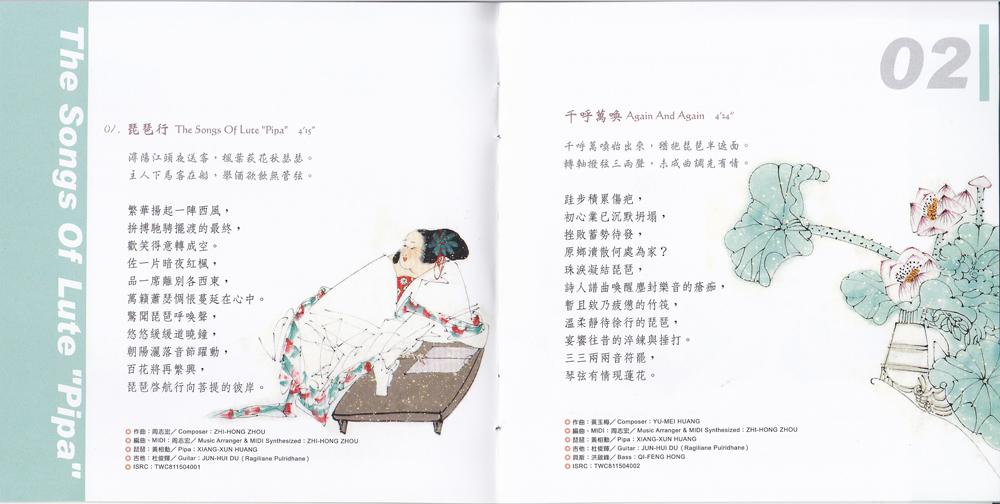 The Songs Of Lute "Pipa"
01. 琵琶行 The Songs Of Lute "Pipa" 4'15"
潯陽江頭夜送客，楓葉荻花秋瑟瑟。
主人下馬客在船，舉酒欲飲無管弦。
繁華揚起一陣西風，
拚搏馳騁擺渡的最終，
歡笑得意轉成空。
佐一片暗夜紅楓，
品一席離別各西東，
萬籟蕭瑟惆悵蔓延在心中。
驚聞琵琶呼喚聲，
悠悠緩緩道曉鐘，
朝陽灑落音節躍動，
百花將再繁興，
琵琶啓航行向菩提的彼岸。
作曲：周志宏／Composer：ZHI-HONG ZHOU
編曲、MIDI：周志宏／Music Arranger & MIDI Synthesized：ZHI-HONG ZHOU
琵琶：黃相勳／Pipa：XIANG-XUN HUANG
吉他：杜俊輝／Guitar：JUN-HUI DU (Ragiliane Pulridhane)
ISRC：TWC811504001
02
千呼萬喚 Again And Again 4'24"
千呼萬喚始出來，猶抱琵琶半遮面。
轉軸撥弦三兩聲，未成曲調先有情。
跬步積累傷疤，
初心業已沉默坍塌，
挫敗蓄勢待發，
原鄉潰散何處為家？
珠淚凝結琵琶，
詩人譜曲喚醒塵封樂音的瘡痂，
暫且欸乃疲憊的竹筏，
溫柔靜待徐行的琵琶，
宴饗往昔的淬鍊與捶打。
三三兩兩音符罷，
琴弦有情現蓮花。
作曲：黃玉梅／Composer：YU-MEI HUANG
編曲、MIDI：周志宏／Music Arranger & MIDI Synthesized：ZHI-HONG ZHOU
琵琶：黃相勳／Pipa：XIANG-XUN HUANG
吉他：杜俊輝／Guitar：JUN-HUI DU (Ragiliane Pulridhane)
貝斯：洪啟峰／Bass：QI-FENG HONG
ISRC：TWC811504002